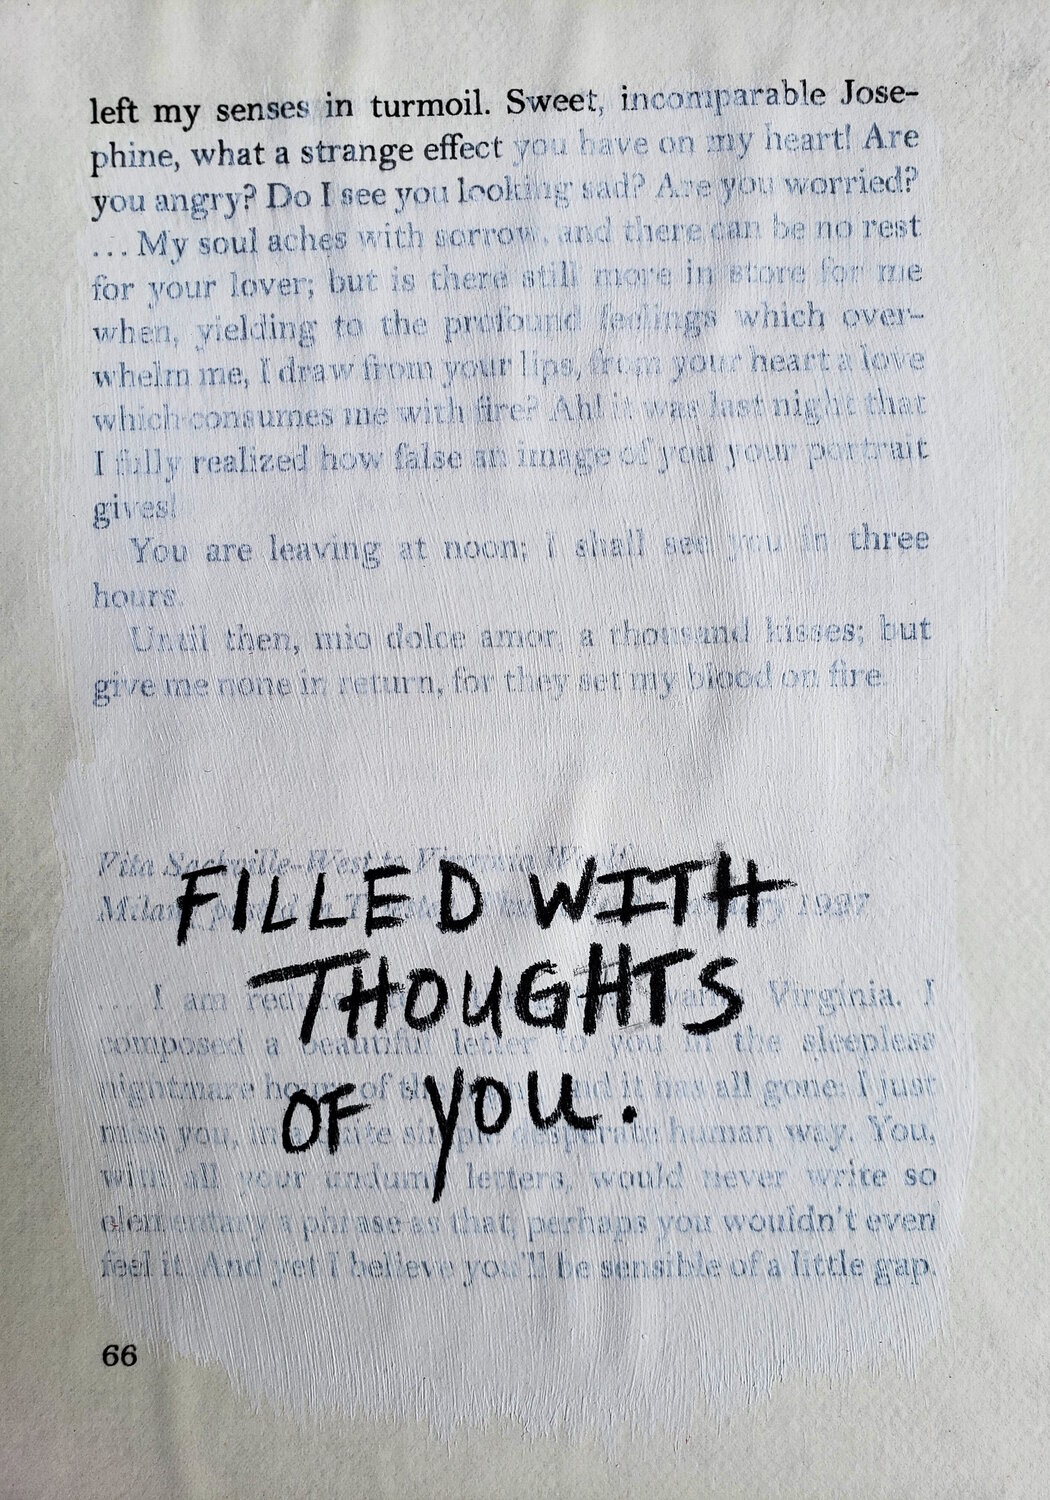 left my senses in turmoil. Sweet, incomparable Jose-
phine, what a strange effect you have on my heart! Are
you angry? Do I see you looking sad? Are you worried?
... My soul aches with sorrow, and there can be no rest
for your lover; but is there still more in store for me
when, yielding to the profound feelings which over-
whelm me, I draw from your lips, from your heart a love
which consumes me with fire? Ah! it was last night that
I fully realized how false an image of you your portrait
gives!
You are leaving at noon; I shall see you in three
hours.
Until then, mio dolce amor, a thousand kisses; but
give me none in return, for they set my blood on fire.
Vita Sackville-West to Virginia Woolf
Milan 1927
FILLED WITH
THOUGHTS
OF YOU.
... I am Virginia. I
composed a beautiful letter to you in the sleepless
nightmare hours of the and it has all gone: I just
miss you, in a quite simple desperate human way. You,
with all your undumb letters, would never write so
elementary a phrase as that; perhaps you wouldn't even
feel it. And yet I believe you'll be sensible of a little gap.
66